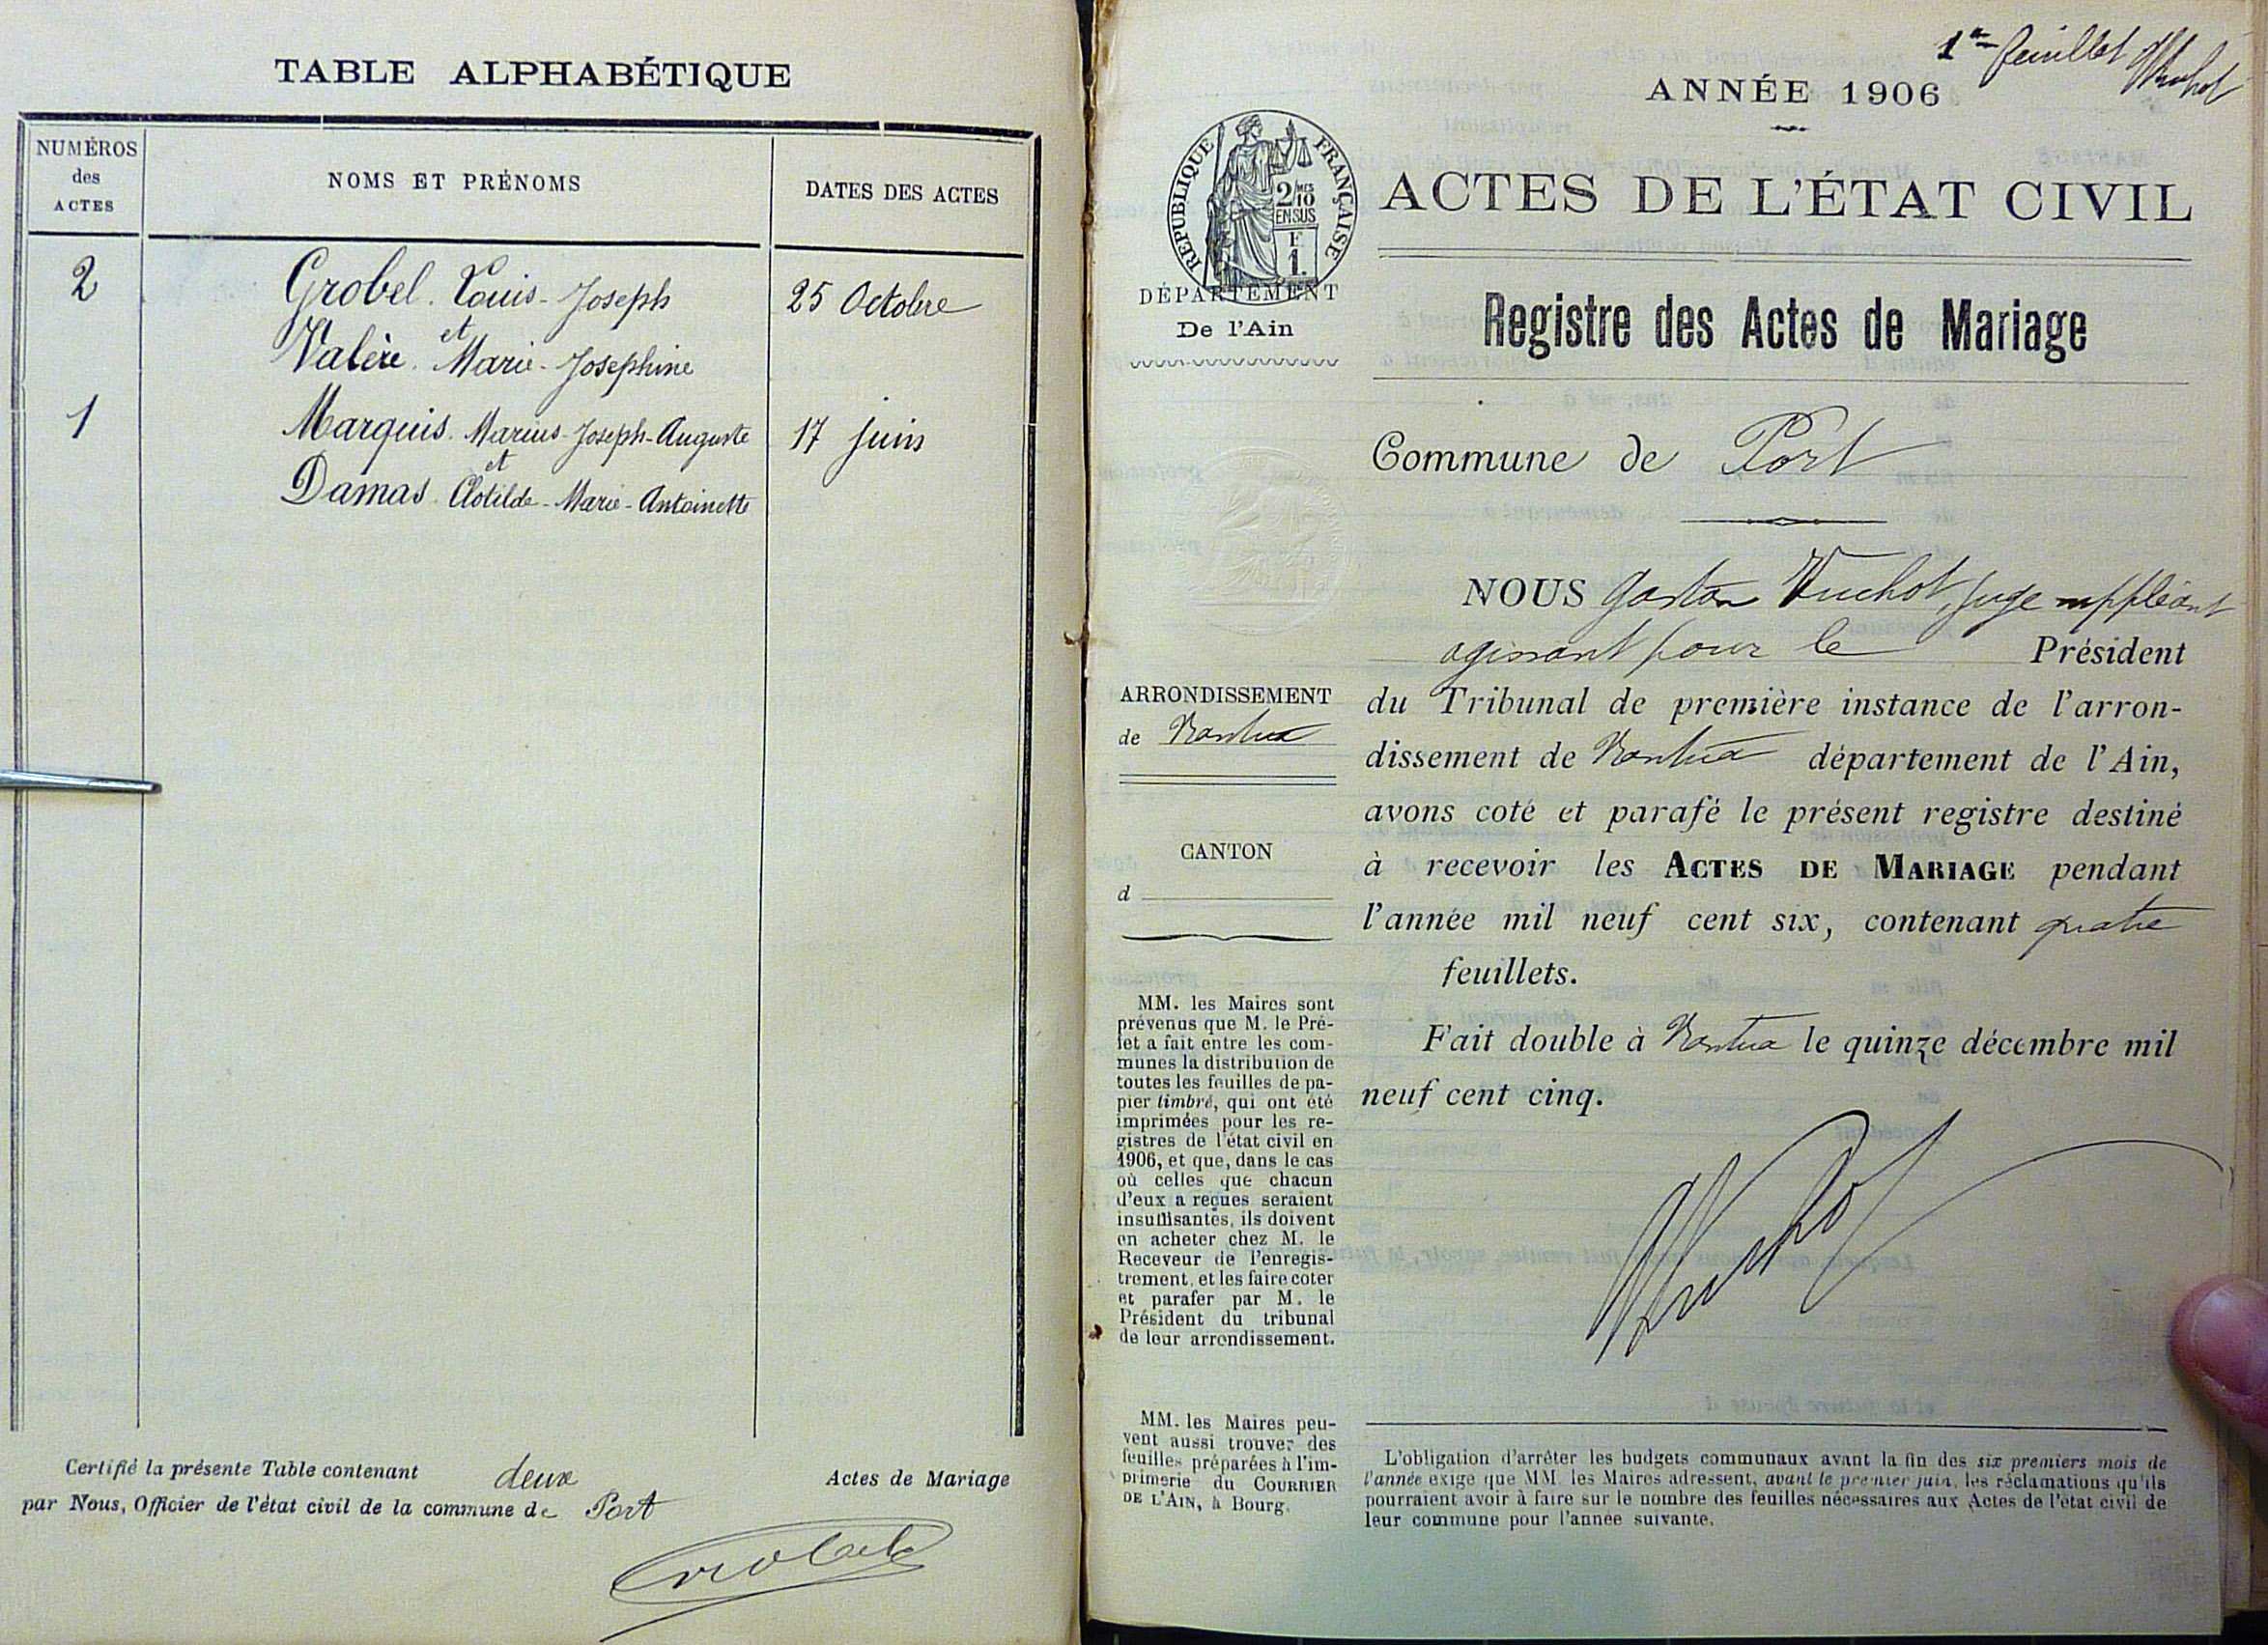 TABLE ALPHABÉTIQUE
NUMÉROS
des
ACTES
NOMS ET PRÉNOMS
DATES DES ACTES
2
Grobel. Louis-Joseph
25 Octobre
et
Valère. Marie-Josephine
1
Marquis. Marius-Joseph-Auguste
17 juin
et
Damas. Clotilde-Marie-Antoinette
Certifié la présente Table contenant deux Actes de Mariage
par Nous, Officier de l'état civil de la commune de Port
1er feuillet
ANNÉE 1906
RÉPUBLIQUE FRANÇAISE
2/10
MES
EN SUS
F
1.
DÉPARTEMENT
De l'Ain
ACTES DE L'ÉTAT CIVIL
Registre des Actes de Mariage
Commune de Port
NOUS Gaston Vuchot, juge suppléant
agissant pour le Président
du Tribunal de première instance de l'arron-
dissement de Nantua département de l'Ain,
avons coté et parafé le présent registre destiné
à recevoir les ACTES DE MARIAGE pendant
l'année mil neuf cent six, contenant quatre
feuillets.
Fait double à Nantua le quinze décembre mil
neuf cent cinq.
ARRONDISSEMENT
de Nantua
CANTON
d
MM. les Maires sont
prévenus que M. le Pré-
fet a fait entre les com-
munes la distribution de
toutes les feuilles de pa-
pier timbré, qui ont été
imprimées pour les re-
gistres de l'état civil en
1906, et que, dans le cas
où celles que chacun
d'eux a reçues seraient
insuffisantes, ils doivent
en acheter chez M. le
Receveur de l'enregis-
trement, et les faire coter
et parafer par M. le
Président du tribunal
de leur arrondissement.
MM. les Maires peu-
vent aussi trouver des
feuilles préparées à l'im-
primerie du COURRIER
DE L'AIN, à Bourg.
L'obligation d'arrêter les budgets communaux avant la fin des six premiers mois de
l'année exige que MM. les Maires adressent, avant le premier juin, les réclamations qu'ils
pourraient avoir à faire sur le nombre des feuilles nécessaires aux Actes de l'état civil de
leur commune pour l'année suivante.